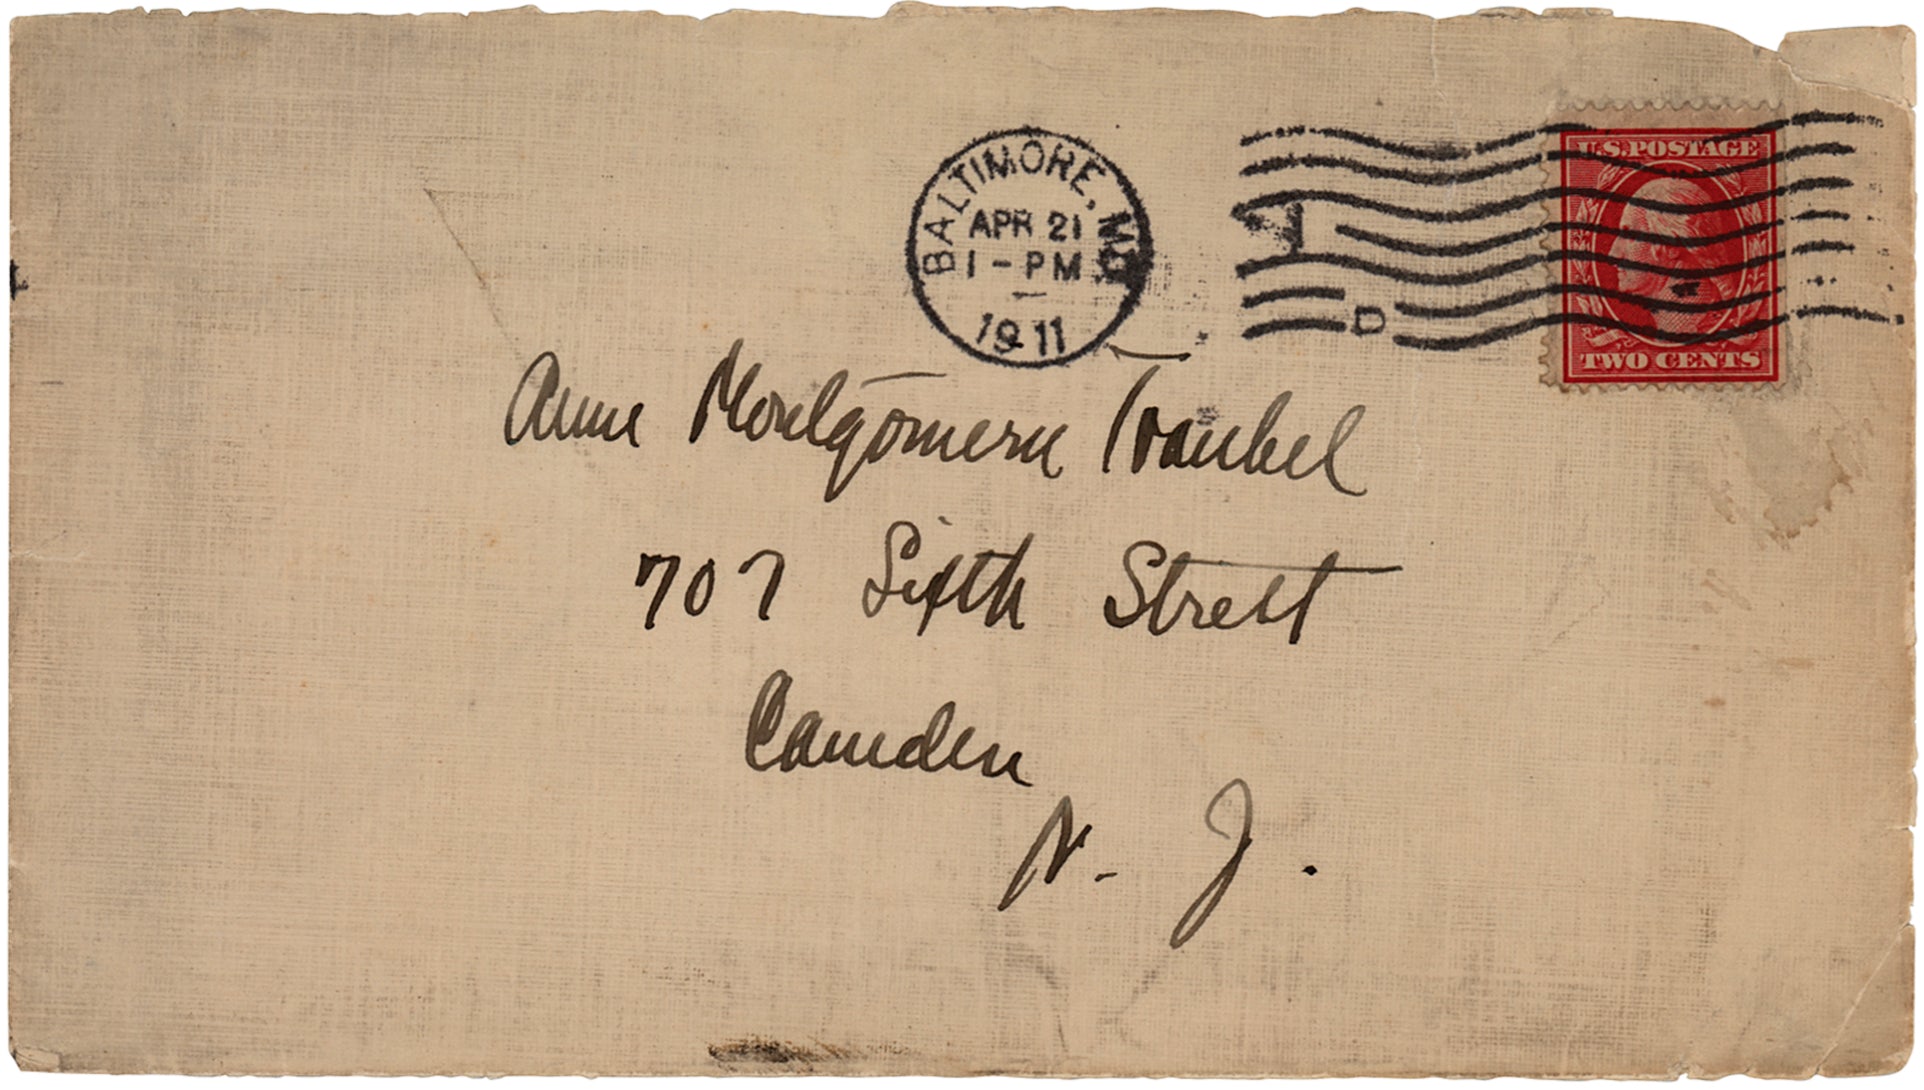 BALTIMORE, MD
APR 21
1 - PM
1911
D
U.S. POSTAGE
TWO CENTS
Anne Montgomerie Traubel
707 Sixth Street
Camden
N. J.